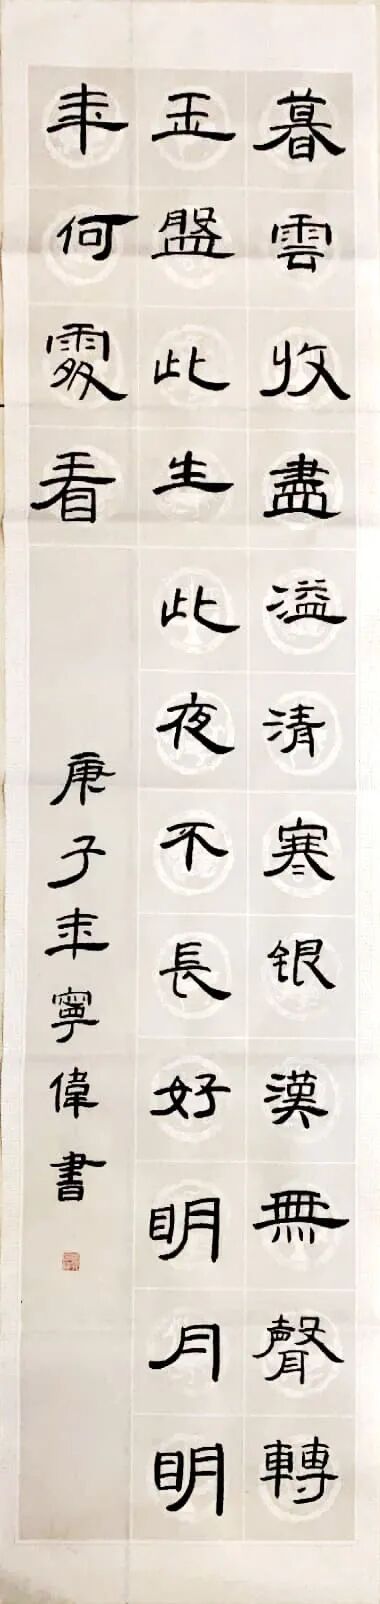 暮雲收盡溢清寒銀漢無聲轉
玉盤此生此夜不長好明月明
年何處看
庚子年寧偉書